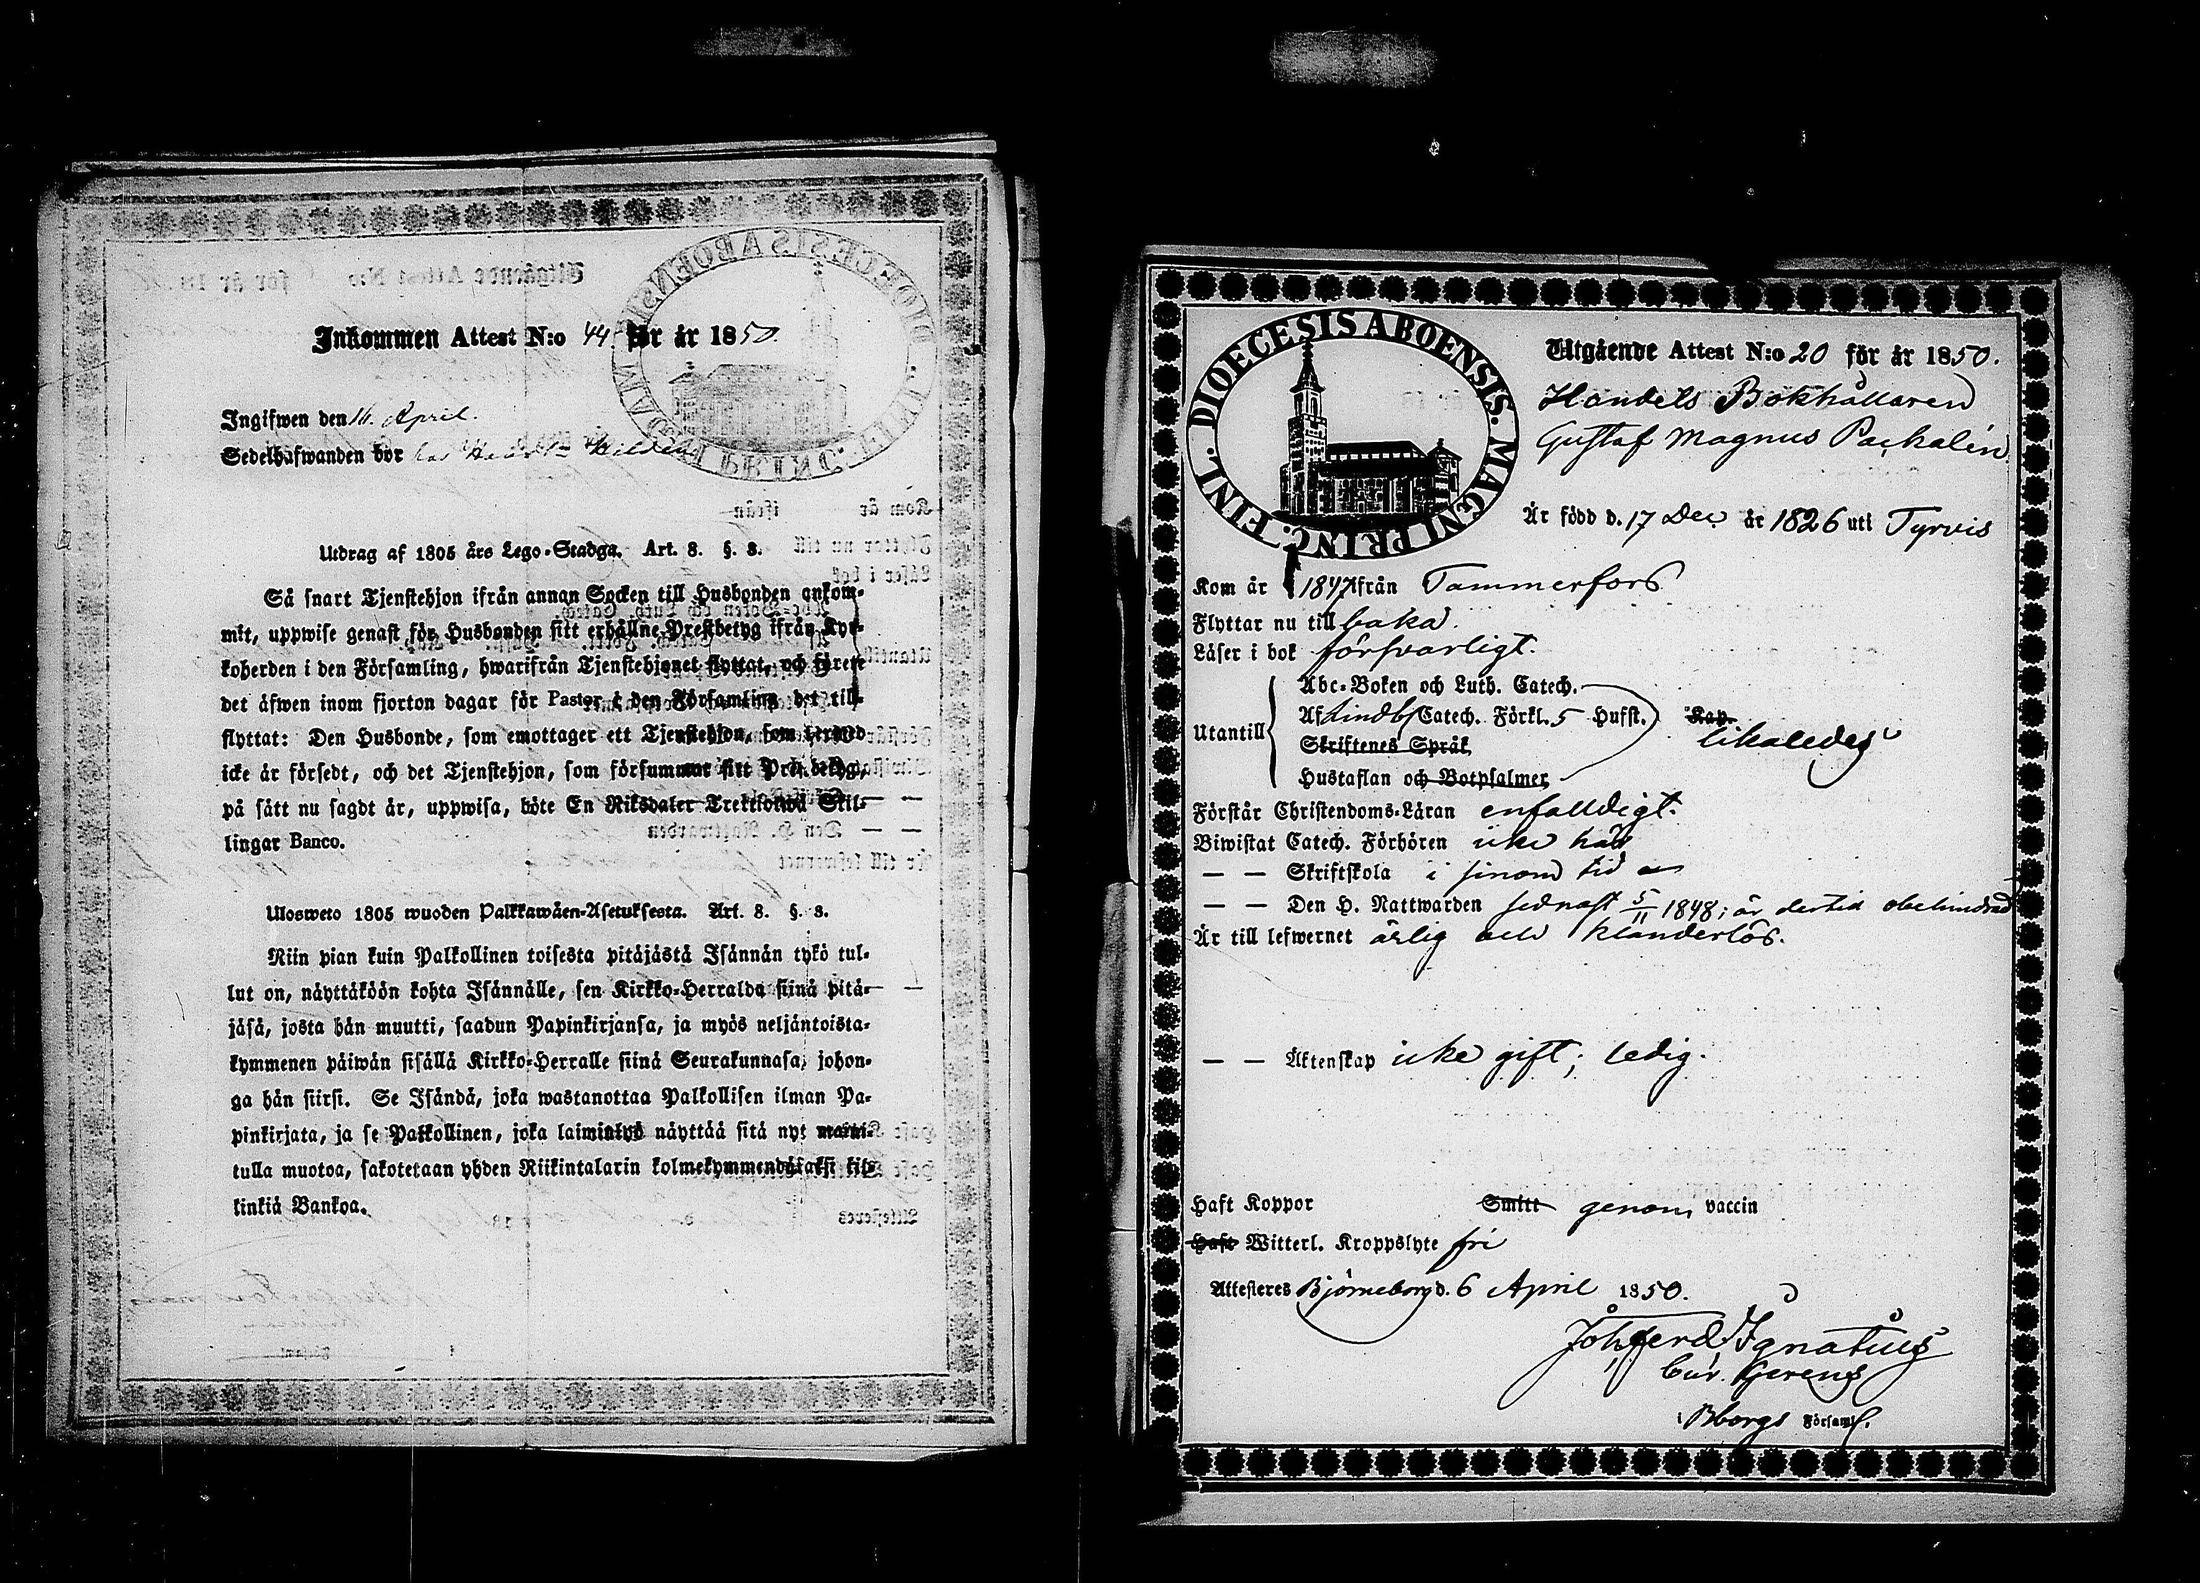 Inkommen Attest N:o 44 för år 1850.
Ingifwen den 16 April.
Sedelhafwanden bör hos
Utdrag af 1805 års Lego-Stadga. Art. 8. §. 8.
Så snart Tjenstehjon ifrån annan Socken till Husbonden ankom-
mit, uppwise genast för Husbonden sitt erhållne Prestbetyg ifrån Kyr-
koherden i den Församling, hwarifrån Tjenstehjonet flyttat, och förete
det äfwen inom fjorton dagar för Pastor i den Församling det till-
flyttat: Den Husbonde, som emottager ett Tjenstehjon, som dermed
icke är försedt, och det Tjenstehjon, som försummar sitt Prestbetyg,
på sätt nu sagdt är, uppwisa, böte En Riksdaler Trettiotwå Skil-
lingar Banco.
Ulosweto 1805 wuoden Palkkawäen-Asetuksesta. Art. 8. §. 8.
Niin pian kuin Palkollinen toisesta pitäjästä Isännän tykö tul-
lut on, näyttäköön kohta Isännälle, sen Kirkko-Herralda siinä pitä-
jäsä, josta hän muutti, saadun Papinkirjansa, ja myös neljäntoista-
kymmenen päiwän sisällä Kirkko-Herralle siinä Seurakunnasa, johon-
ga hän siirsi. Se Isändä, joka wastanottaa Palkollisen ilman Pa-
pinkirjata, ja se Palkollinen, joka laiminlyö näyttää sitä nyt mainit-
tulla muotoa, sakotetaan yhden Riikintalarin kolmekymmendäkaksi kil-
linkiä Bankoa.
DIOECESIS ABOENSIS. MAGNI PRINC. FINL.
Utgående Attest N:o 20 för år 1850.
Handels Bokhållaren
Gustaf Magnus Pachalén
Är född d. 17 Dec. år 1826 uti Tyrvis
Kom år 1847 ifrån Tammerfors
Flyttar nu till baka.
Läser i bok försvarligt.
Abc-Boken och Luth. Catech.
Utantill Af Lindbl. Catech. Förkl. 5 Hufst. Kap. likaledes
Skriftenes Språk
Hustaflan och Botpsalmer
Förstår Christendoms-Läran enfalldigt.
Biwistat Catech. Förhören icke här
— — Skriftskola i sinom tid
— — Den H. Nattwarden sednast 5/11 1848; är dertid obehindrad
Är till lefwernet ärlig och klanderlös.
— — Äktenskap icke gift; ledig.
Haft Koppor Smitt genom vaccin
Haft Witterl. Kroppslyte fri
Attesteres Björneborg d. 6 April 1850.
Joh. Ferd. Ignatius
Cur. Gerens
i Bborgs Församl.